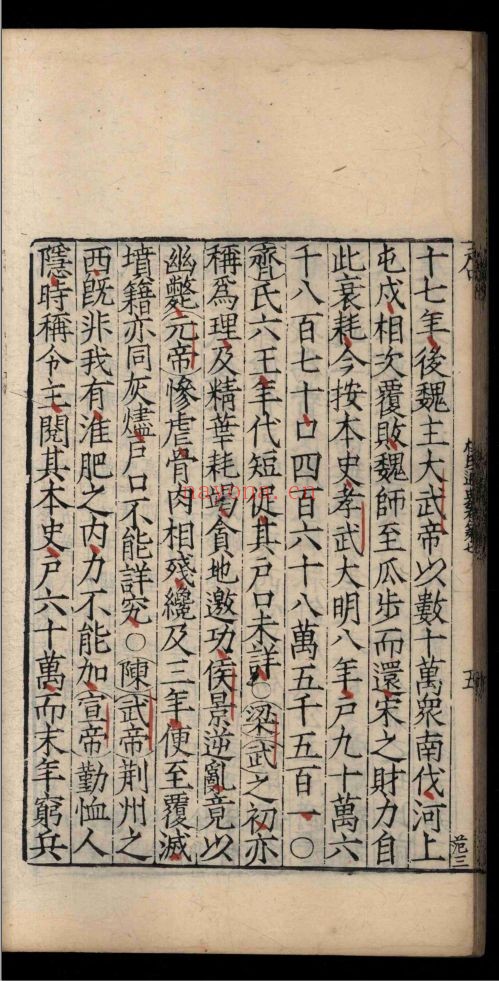 十七年後魏主大武帝以數十萬衆南伐河上
屯戍相次覆敗魏師至瓜步而還宋之財力自
此衰耗今按本史孝武大明八年戶九十萬六
千八百七十口四百六十八萬五千五百一〇
齊氏六王年代短促其戶口未詳〇梁武之初亦
稱爲理及精華耗竭貪地邀功侯景逆亂竟以
幽斃元帝慘虐骨肉相殘纔及三年便至覆滅
墳籍亦同灰燼戶口不能詳究〇陳武帝荆州之
西旣非我有淮肥之內力不能加宣帝勤恤人
隱時稱令主閱其本史戶六十萬而末年窮兵
五
范三
nayona.cn